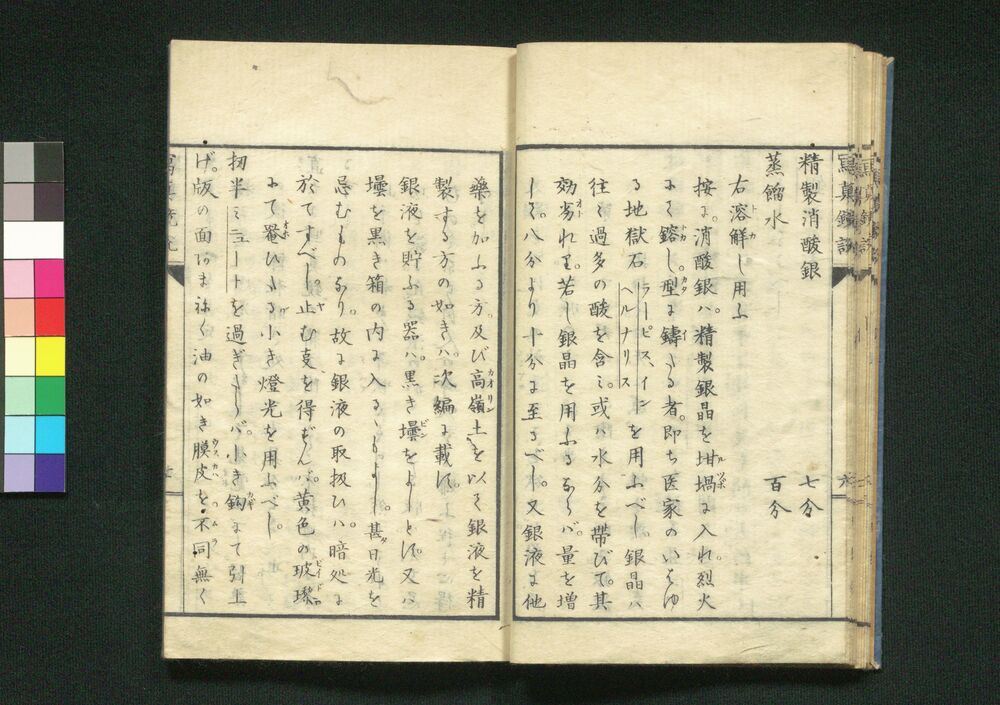 精製消酸銀　七分
蒸餾水　百分
右溶解し用ふ
按に消酸銀ハ。精製銀晶を坩堝に入れ。烈火
にて鎔し。型に鑄たる者。即ち医家のいはゆ
る地獄石ラーピス、インヘルナリスを用ふべし。銀晶ハ
往々過多の酸を含ミ。或ハ水分を帶びて。其
効劣れり。若し銀晶を用ふるならバ。量を増
して。八分より十分に至るべし。又銀液に他
藥を加ふる方。及び高嶺土を以て銀液を精
製する方の如きハ。次編に載す。
銀液を貯ふる器ハ。黒き壜をよしとす。又ハ
壜を黒き箱の内に入るゝもよし。甚日光を
忌むものなり。故に銀液の取扱ひハ。暗処に
於てすべし。止む支を得ずんば。黄色の玻瓈
にて罨ひたる小き燈光を用ふべし。
扨半ミニュートを過ぎたらバ。小き鈎にて引上
げ。版の面あまねく油の如き膜皮を。不同無く
寫真鏡説
六